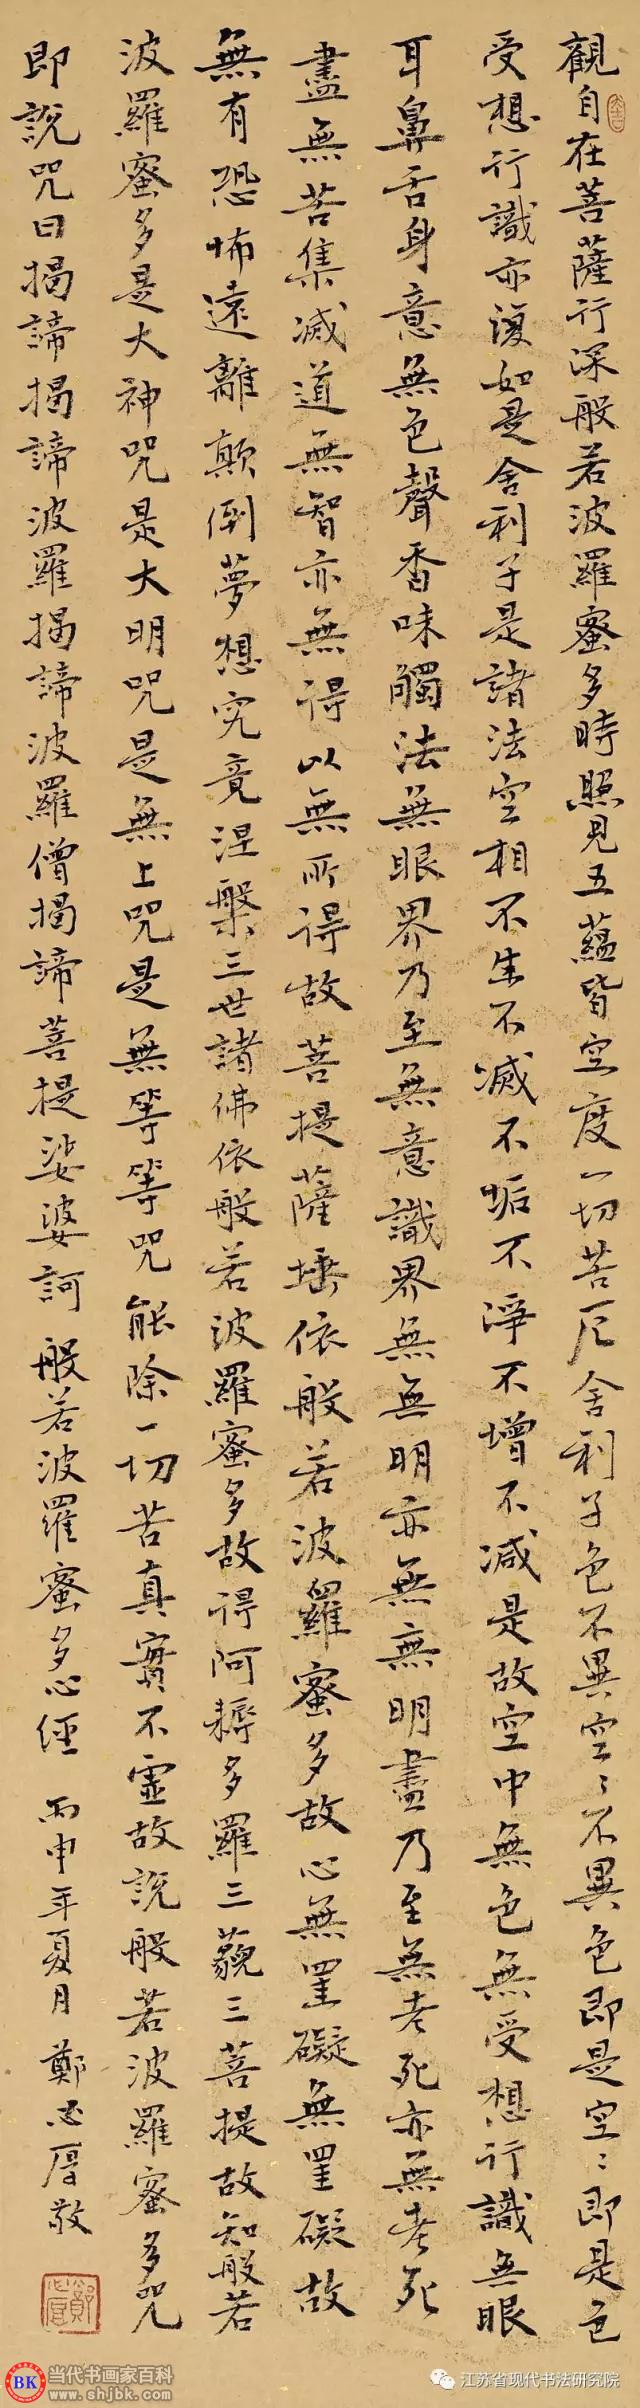 觀自在菩薩行深般若波羅蜜多時照見五蘊皆空度一切苦厄舍利子色不異空〻不異色即是空〻即是色
受想行識亦復如是舍利子是諸法空相不生不滅不垢不淨不增不減是故空中無色無受想行識無眼
耳鼻舌身意無色聲香味觸法無眼界乃至無意識界無無明亦無無明盡乃至無老死亦無老死
盡無苦集滅道無智亦無得以無所得故菩提薩埵依般若波羅蜜多故心無罣礙無罣礙故
無有恐怖遠離顛倒夢想究竟涅槃三世諸佛依般若波羅蜜多故得阿耨多羅三藐三菩提故知般若
波羅蜜多是大神咒是大明咒是無上咒是無等等咒能除一切苦真實不虛故說般若波羅蜜多咒
即說咒曰揭諦揭諦波羅揭諦波羅僧揭諦菩提娑婆訶 般若波羅蜜多心經 丙申年夏月 鄭厚敬
BK
当代书画家百科
www.shjbk.com
江苏省现代书法研究院